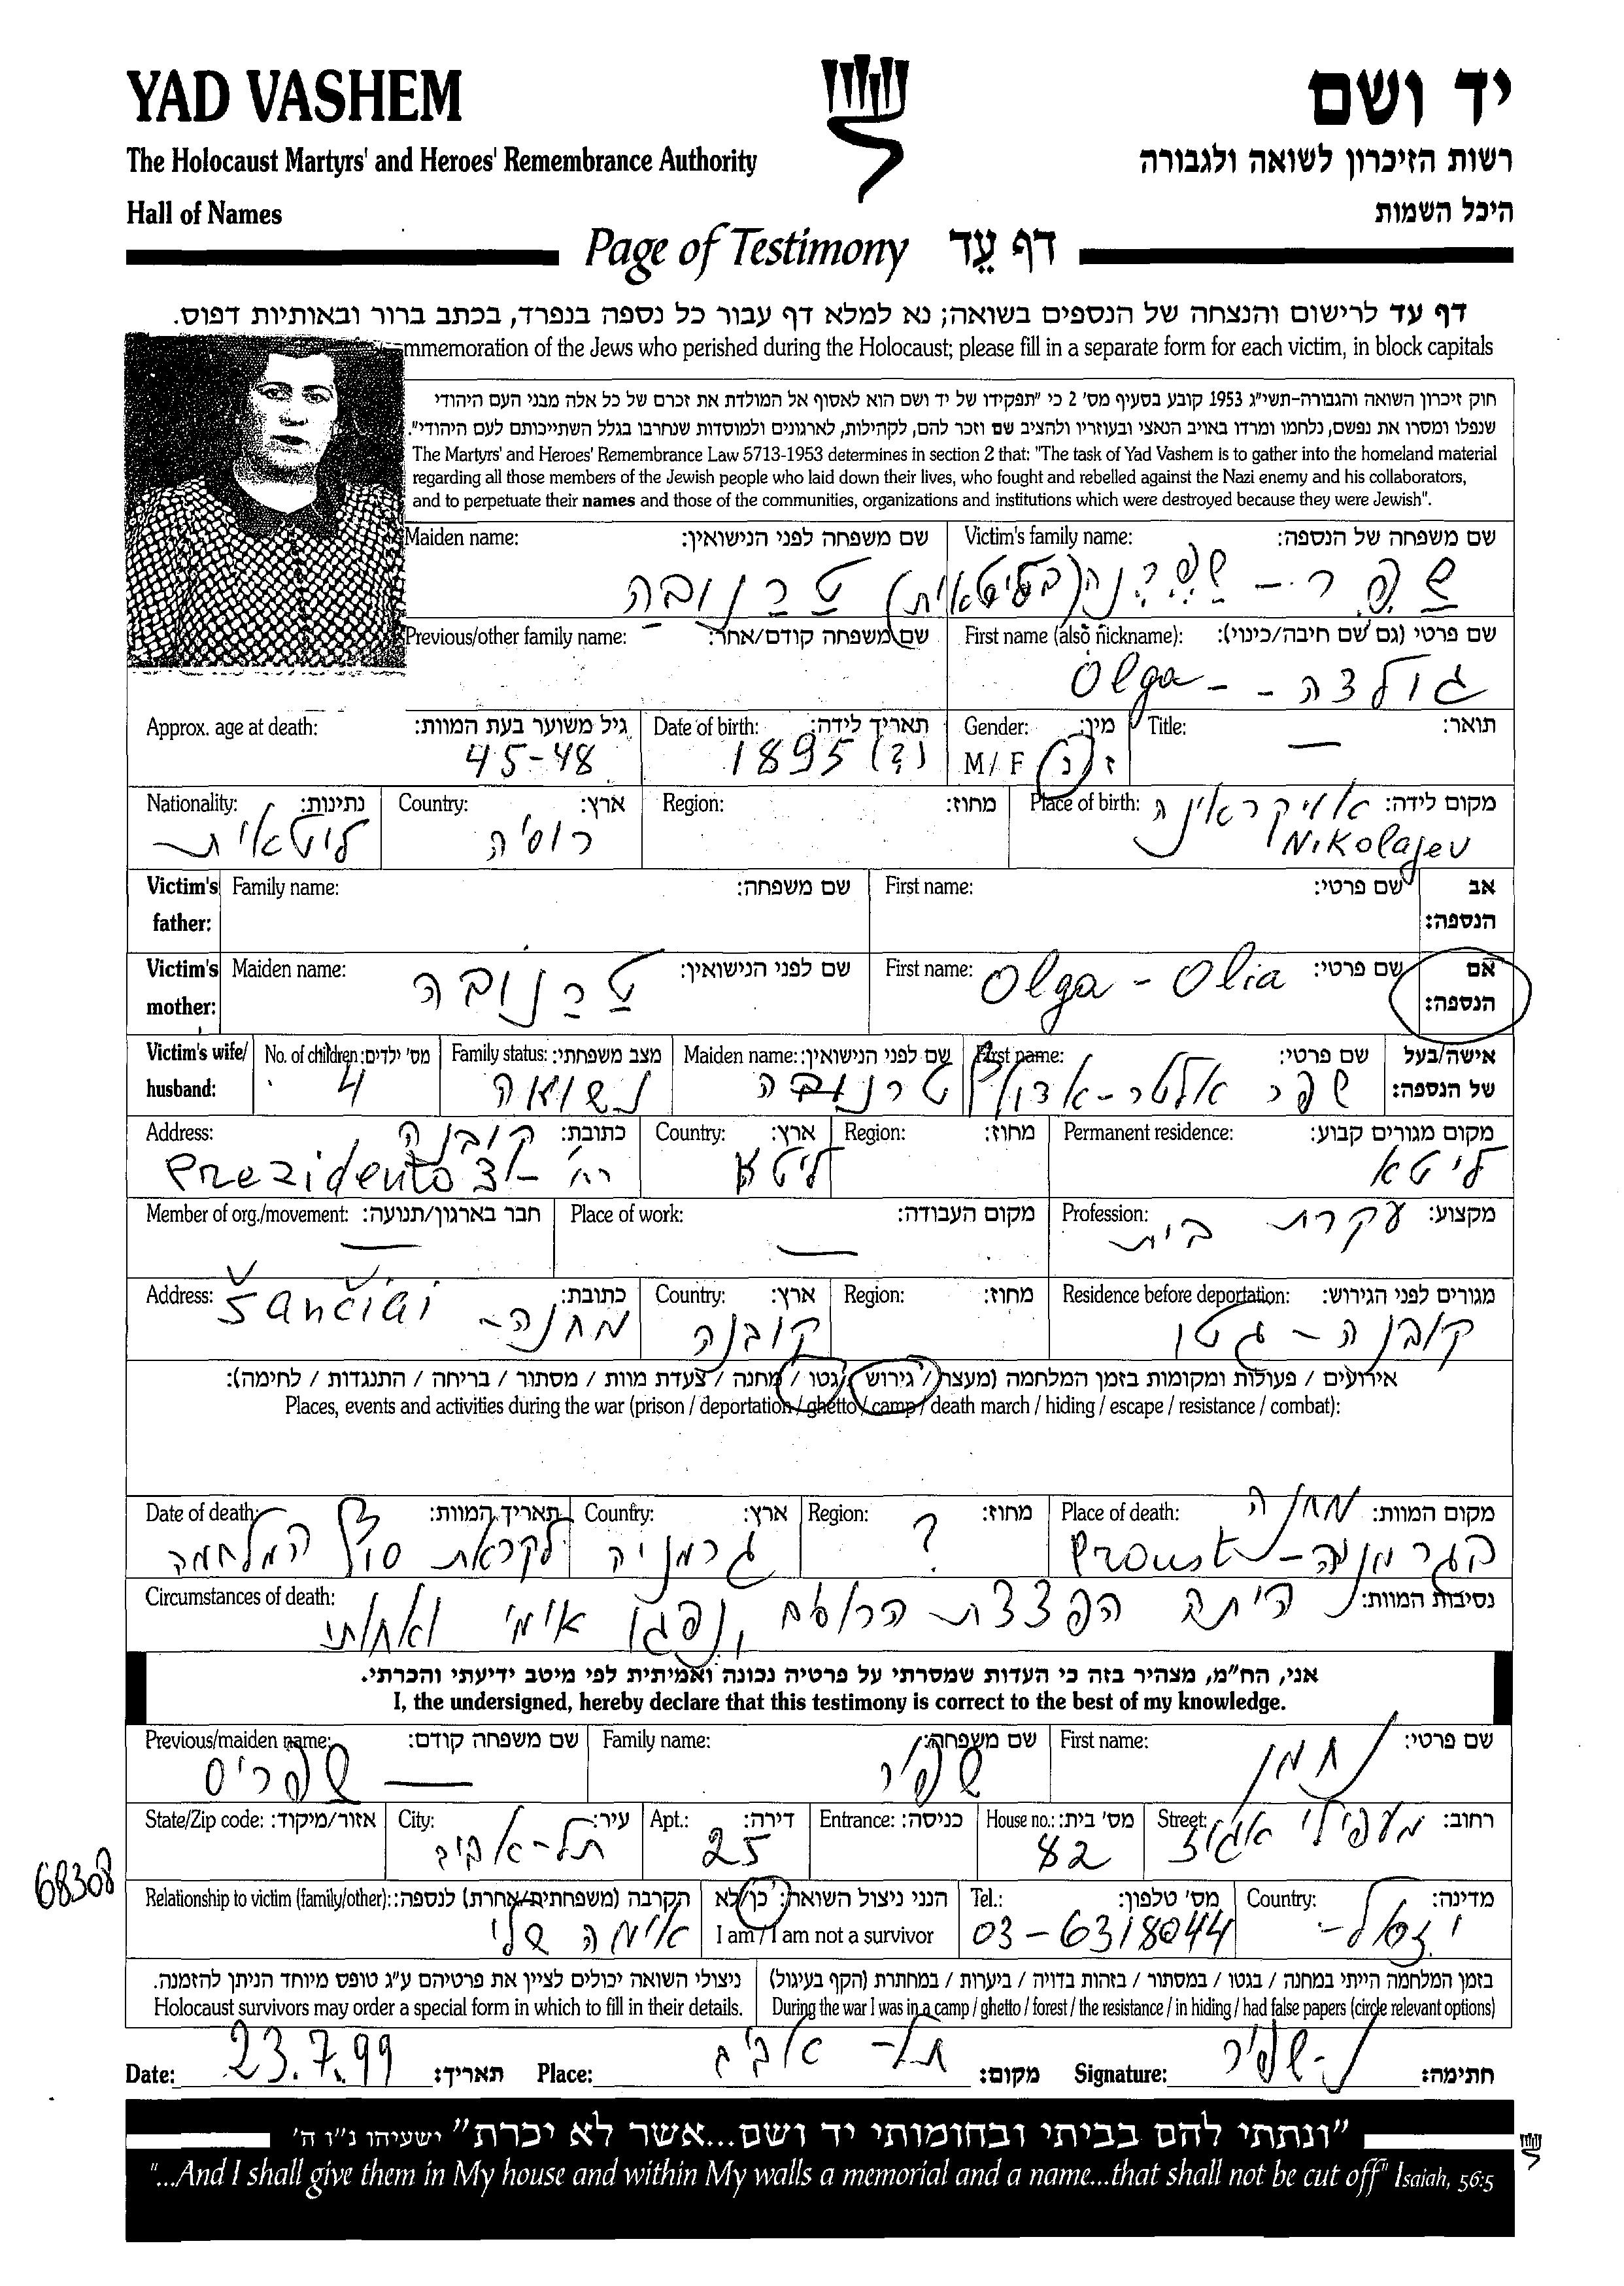 YAD VASHEM
יד ושם
The Holocaust Martyrs' and Heroes' Remembrance Authority
רשות הזיכרון לשואה ולגבורה
Hall of Names
היכל השמות
Page of Testimony דף עֵד
דף עד לרישום והנצחה של הנספים בשואה; נא למלא דף עבור כל נספה בנפרד, בכתב ברור ובאותיות דפוס.
mmemoration of the Jews who perished during the Holocaust; please fill in a separate form for each victim, in block capitals
חוק זיכרון השואה והגבורה-תשי"ג 1953 קובע בסעיף מס' 2 כי "תפקידו של יד ושם הוא לאסוף אל המולדת את זכרם של כל אלה מבני העם היהודי
שנפלו ומסרו את נפשם, נלחמו ומרדו באויב הנאצי ובעוזריו ולהציב שם וזכר להם, לקהילות, לארגונים ולמוסדות שנחרבו בגלל השתייכותם לעם היהודי".
The Martyrs' and Heroes' Remembrance Law 5713-1953 determines in section 2 that: "The task of Yad Vashem is to gather into the homeland material
regarding all those members of the Jewish people who laid down their lives, who fought and rebelled against the Nazi enemy and his collaborators,
and to perpetuate their names and those of the communities, organizations and institutions which were destroyed because they were Jewish".
Maiden name: שם משפחה לפני הנישואין: Victim's family name: שם משפחה של הנספה:
שפר - (בליטאית) טרנובה
Previous/other family name: שם משפחה קודם/אחר: First name (also nickname): שם פרטי (גם שם חיבה/כינוי):
גולדה - - Olga
Approx. age at death: גיל משוער בעת המוות: Date of birth: תאריך לידה: Gender: מין: Title: תואר:
45-48 1895 (?) M/ F ז / נ —
Nationality: נתינות: Country: ארץ: Region: מחוז: Place of birth: מקום לידה: אוקראינה
ליטאית רוסיה Nikolajev
Victim's father: Family name: שם משפחה: First name: שם פרטי: אב הנספה:
Victim's mother: Maiden name: שם לפני הנישואין: First name: שם פרטי: אם הנספה:
טרנובה Olga - Olia
Victim's wife/ husband: No. of children: מס' ילדים: Family status: מצב משפחתי: Maiden name: שם לפני הנישואין: First name: שם פרטי: אישה/בעל של הנספה:
4 נשואה טרנובה שפר אלטר-אדולף
Address: כתובת: קובנה Country: ארץ: Region: מחוז: Permanent residence: מקום מגורים קבוע:
רח' Prezidento ליטא ליטא
Member of org./movement: חבר בארגון/תנועה: Place of work: מקום העבודה: Profession: מקצוע:
— — עקרת בית
Address: כתובת: Country: ארץ: Region: מחוז: Residence before deportation: מגורים לפני הגירוש:
מחנה- Šančiai קובנה קובנה - גטו
אירועים / פעולות ומקומות בזמן המלחמה (מעצר / גירוש / גטו / מחנה / צעדת מוות / מסתור / בריחה / התנגדות / לחימה):
Places, events and activities during the war (prison / deportation / ghetto / camp / death march / hiding / escape / resistance / combat):
Date of death: תאריך המוות: Country: ארץ: Region: מחוז: Place of death: מקום המוות: מחנה
לקראת סוף המלחמה גרמניה ? בגרמניה - Proust
Circumstances of death: נסיבות המוות:
היתה הפצצת ונפגעו אימי ואחותי
אני, הח"מ, מצהיר בזה כי העדות שמסרתי על פרטיה נכונה ואמיתית לפי מיטב ידיעתי והכרתי.
I, the undersigned, hereby declare that this testimony is correct to the best of my knowledge.
Previous/maiden name: שם משפחה קודם: Family name: שם משפחה: First name: שם פרטי:
שפריס — שפיר נחמן
State/Zip code: אזור/מיקוד: City: עיר: Apt.: דירה: Entrance: כניסה: House no.: מס' בית: Street: רחוב:
68308 תל-אביב 25 82 מעפילי אגוז
Relationship to victim (family/other): הקרבה (משפחתית/אחרת) לנספה: הנני ניצול השואה: כן/לא Tel.: מס' טלפון: Country: מדינה:
אימה שלי I am / I am not a survivor 03-6318044 ישראל-
ניצולי השואה יכולים לציין את פרטיהם ע"ג טופס מיוחד הניתן להזמנה. בזמן המלחמה הייתי במחנה / בגטו / במסתור / בזהות בדויה / ביערות / במחתרת (הקף בעיגול)
Holocaust survivors may order a special form in which to fill in their details. During the war I was in a camp / ghetto / forest / the resistance / in hiding / had false papers (circle relevant options)
Date: 23.7.99 תאריך: Place: תל-אביב מקום: Signature: נ-שפיר חתימה:
"ונתתי להם בביתי ובחומותי יד ושם...אשר לא יכרת" ישעיהו נ"ו ה'
"...And I shall give them in My house and within My walls a memorial and a name...that shall not be cut off" Isaiah, 56:5